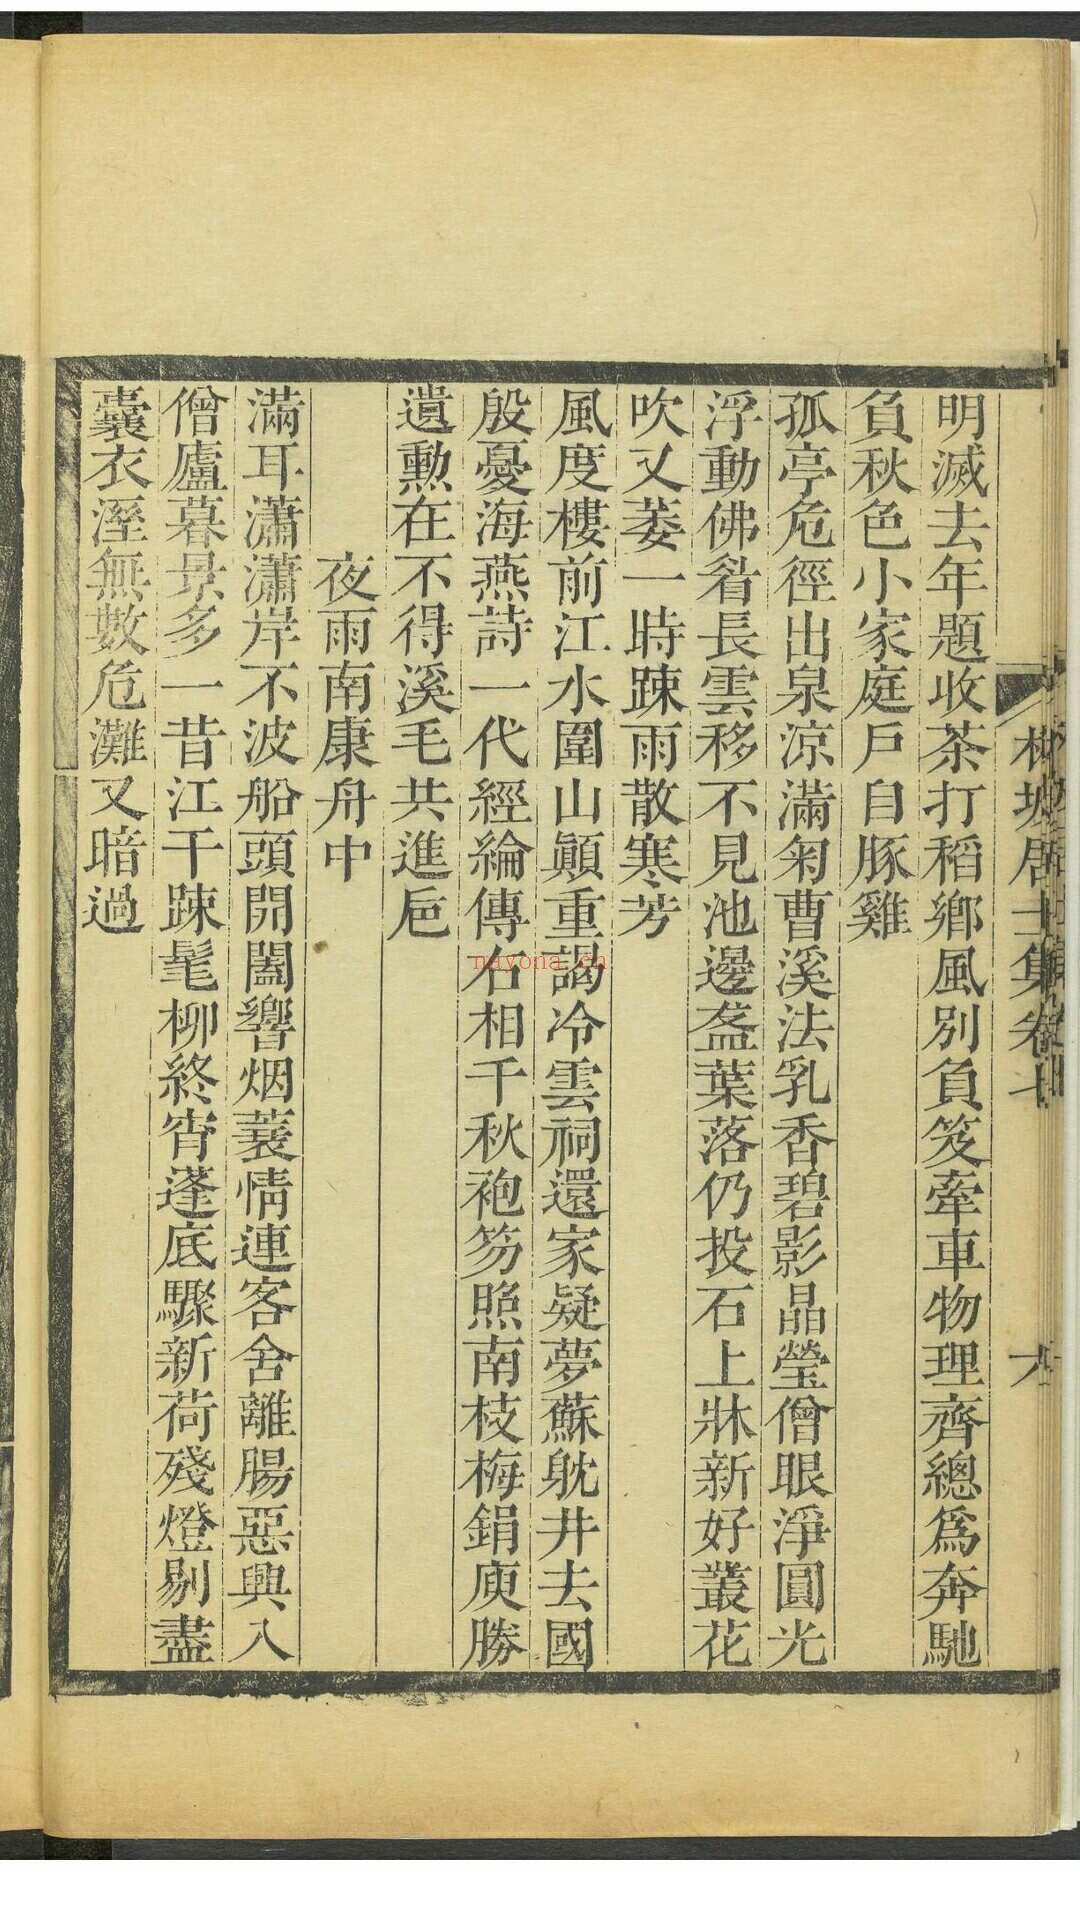 明滅去年題收茶打稻鄉風別負笈牽車物理齊總爲奔馳
負秋色小家庭戶自豚雞
孤亭危徑出泉涼滿匊曹溪法乳香碧影晶瑩僧眼淨圓光
浮動佛眉長雲移不見池邊盋葉落仍投石上牀新好叢花
吹又萎一時踈雨散寒芳
風度樓前江水圍山顚重謁冷雲祠還家疑夢蘇耽井去國
殷憂海燕詩一代經綸傳右相千秋袍笏照南枝梅鋗庾勝
遺勲在不得溪毛共進卮
夜雨南康舟中
滿耳瀟瀟岸不波船頭開闔響烟蓑情連客舍離腸惡興入
僧廬暮景多一昔江干踈髦柳終宵蓬底驟新荷殘燈剔盡
囊衣溼無數危灘又暗過
居士集卷十
navona.cn